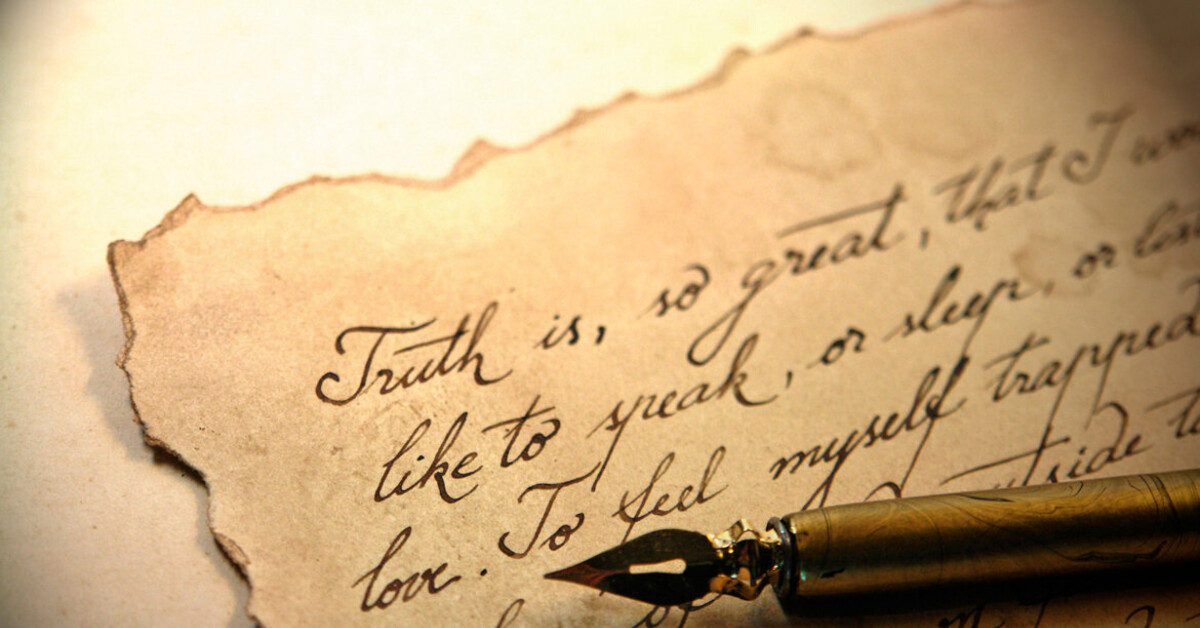 Truth is, so great, that I
like to speak, or sleep, or
love. To feel myself trapped
outside